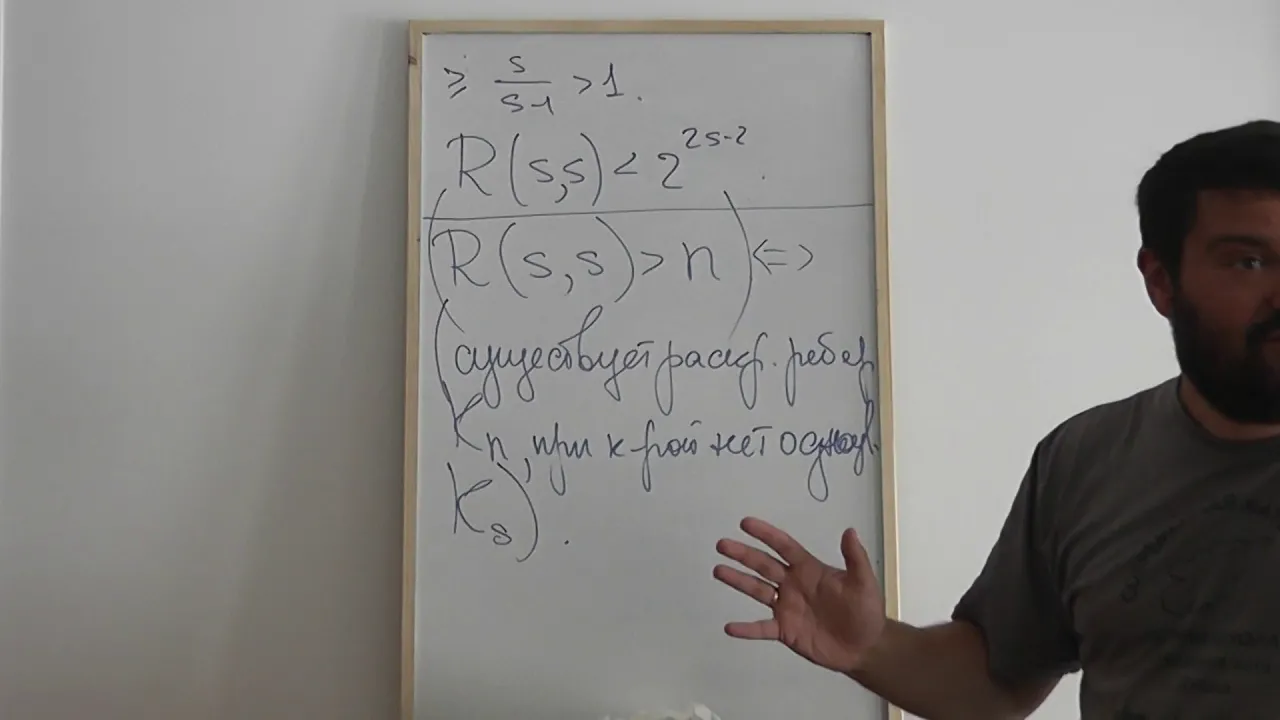 ≥ s/(s-1) > 1.
R(s,s) < 2^{2s-2}.
(R(s,s) > n) <=>
(существует раскр. ребер
K_n, при к-рой нет одноцв.
K_s).